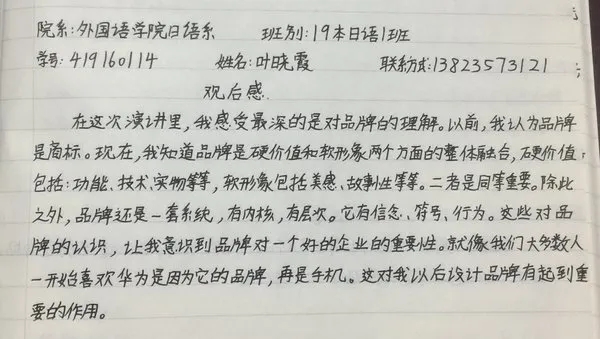 院系:外国语学院日语系 班别:19本日语1班
学号:419160114 姓名:叶晓霞 联系方式:13823573121
观后感
在这次演讲里,我感受最深的是对品牌的理解。以前,我认为品牌
是商标。现在,我知道品牌是硬价值和软形象两个方面的整体融合,硬价值
包括:功能、技术、实物等等,软形象包括美感、故事性等等。二者是同等重要。除此
之外,品牌还是一套系统,有内核,有层次。它有信念、符号、行为。这些对品
牌的认识,让我意识到品牌对一个好的企业的重要性。就像我们大多数人
一开始喜欢华为是因为它的品牌,再是手机。这对我以后设计品牌有起到重
要的作用。